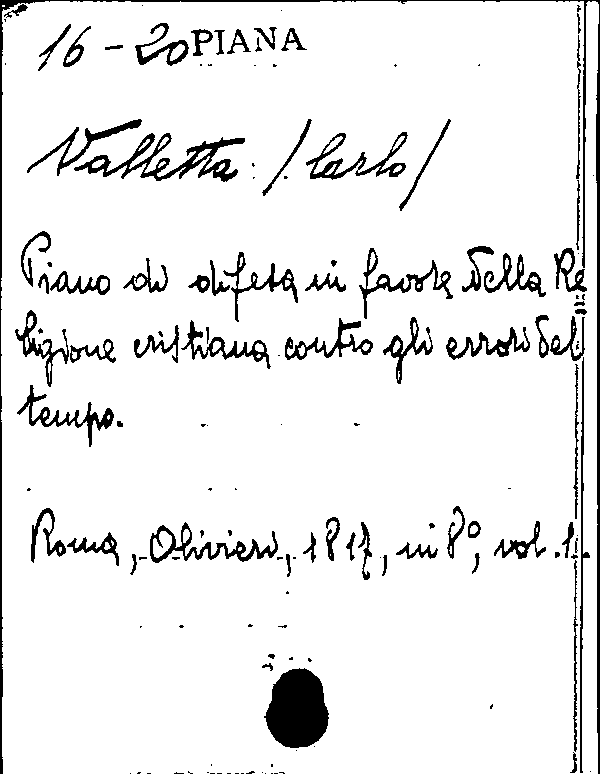 16 - 20 PIANA
Valletta: /Carlo/
Piano di difesa in favore della Re
ligione cristiana contro gli errori del
tempo.
Roma, Olivieri, 1817, in 8°, vol. 1.